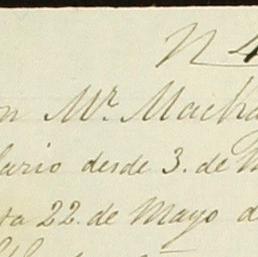 N 4
n Mr. Macha
lario desde 3. de M
ta 22. de Mayo d